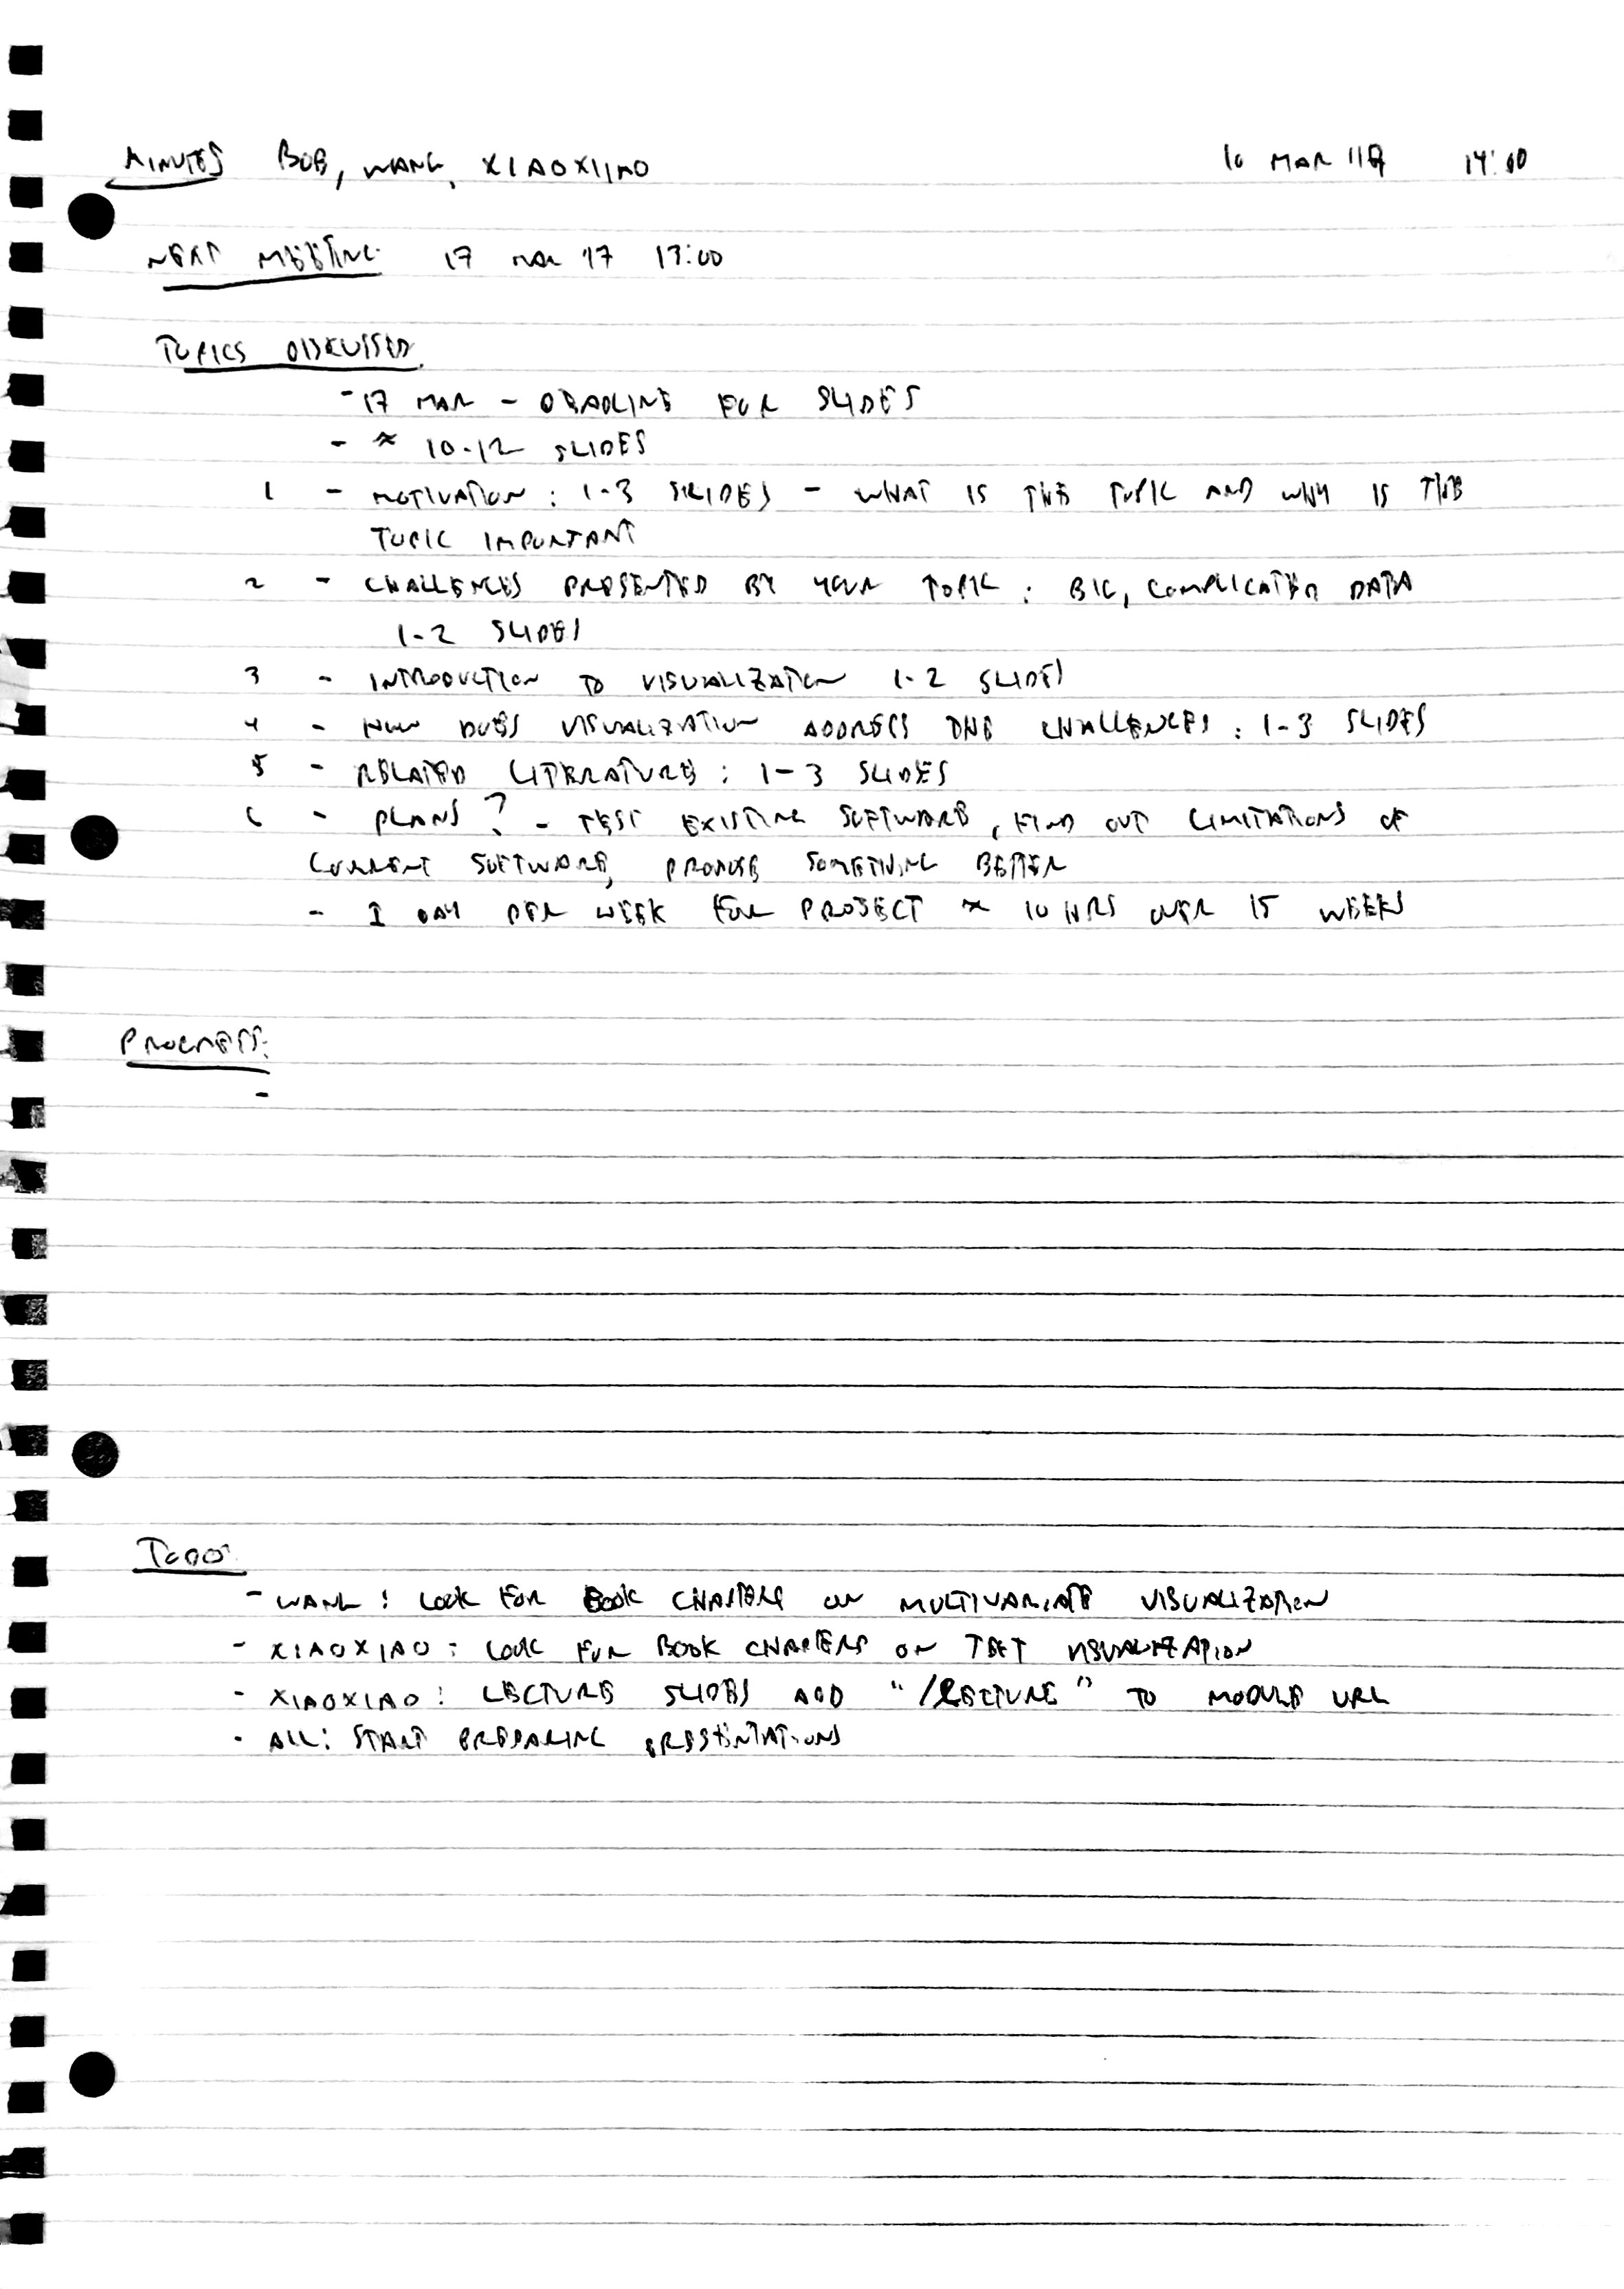 MINUTES BOB, WANG, XIAOXIAO 10 MAR 14:00
NEXT MEETING 17 MAR '17 13:00
TOPICS DISKUSSED
- 17 MAR - DEADLINE FOR SLIDES
- ≈ 10-12 SLIDES
1 - MOTIVATION: 1-3 SLIDES - WHAT IS THE TOPIC AND WHY IS THE
TOPIC IMPORTANT
2 - CHALLENGES PRESENTED BY YOUR TOPIC: BIG, COMPLICATED DATA
1-2 SLIDES
3 - INTRODUCTION TO VISUALIZATION 1-2 SLIDES
4 - HOW DOES VISUALIZATION ADDRESS THE CHALLENGES: 1-3 SLIDES
5 - RELATED LITERATURE: 1-3 SLIDES
6 - PLANS? - TEST EXISTING SOFTWARE, FIND OUT LIMITATIONS OF
CURRENT SOFTWARE, PROPOSE SOMETHING BETTER
- 1 DAY PER WEEK FOR PROJECT ≈ 10 HRS OVER 15 WEEKS
PROGRESS:
-
TODO:
- WANG: LOOK FOR BOOK CHAPTERS ON MULTIVARIATE VISUALIZATION
- XIAOXIAO: LOOK FOR BOOK CHAPTERS ON TEXT VISUALIZATION
- XIAOXIAO: LECTURE SLIDES ADD "/LECTURE" TO MODULE URL
- ALL: START PREPARING PRESENTATIONS